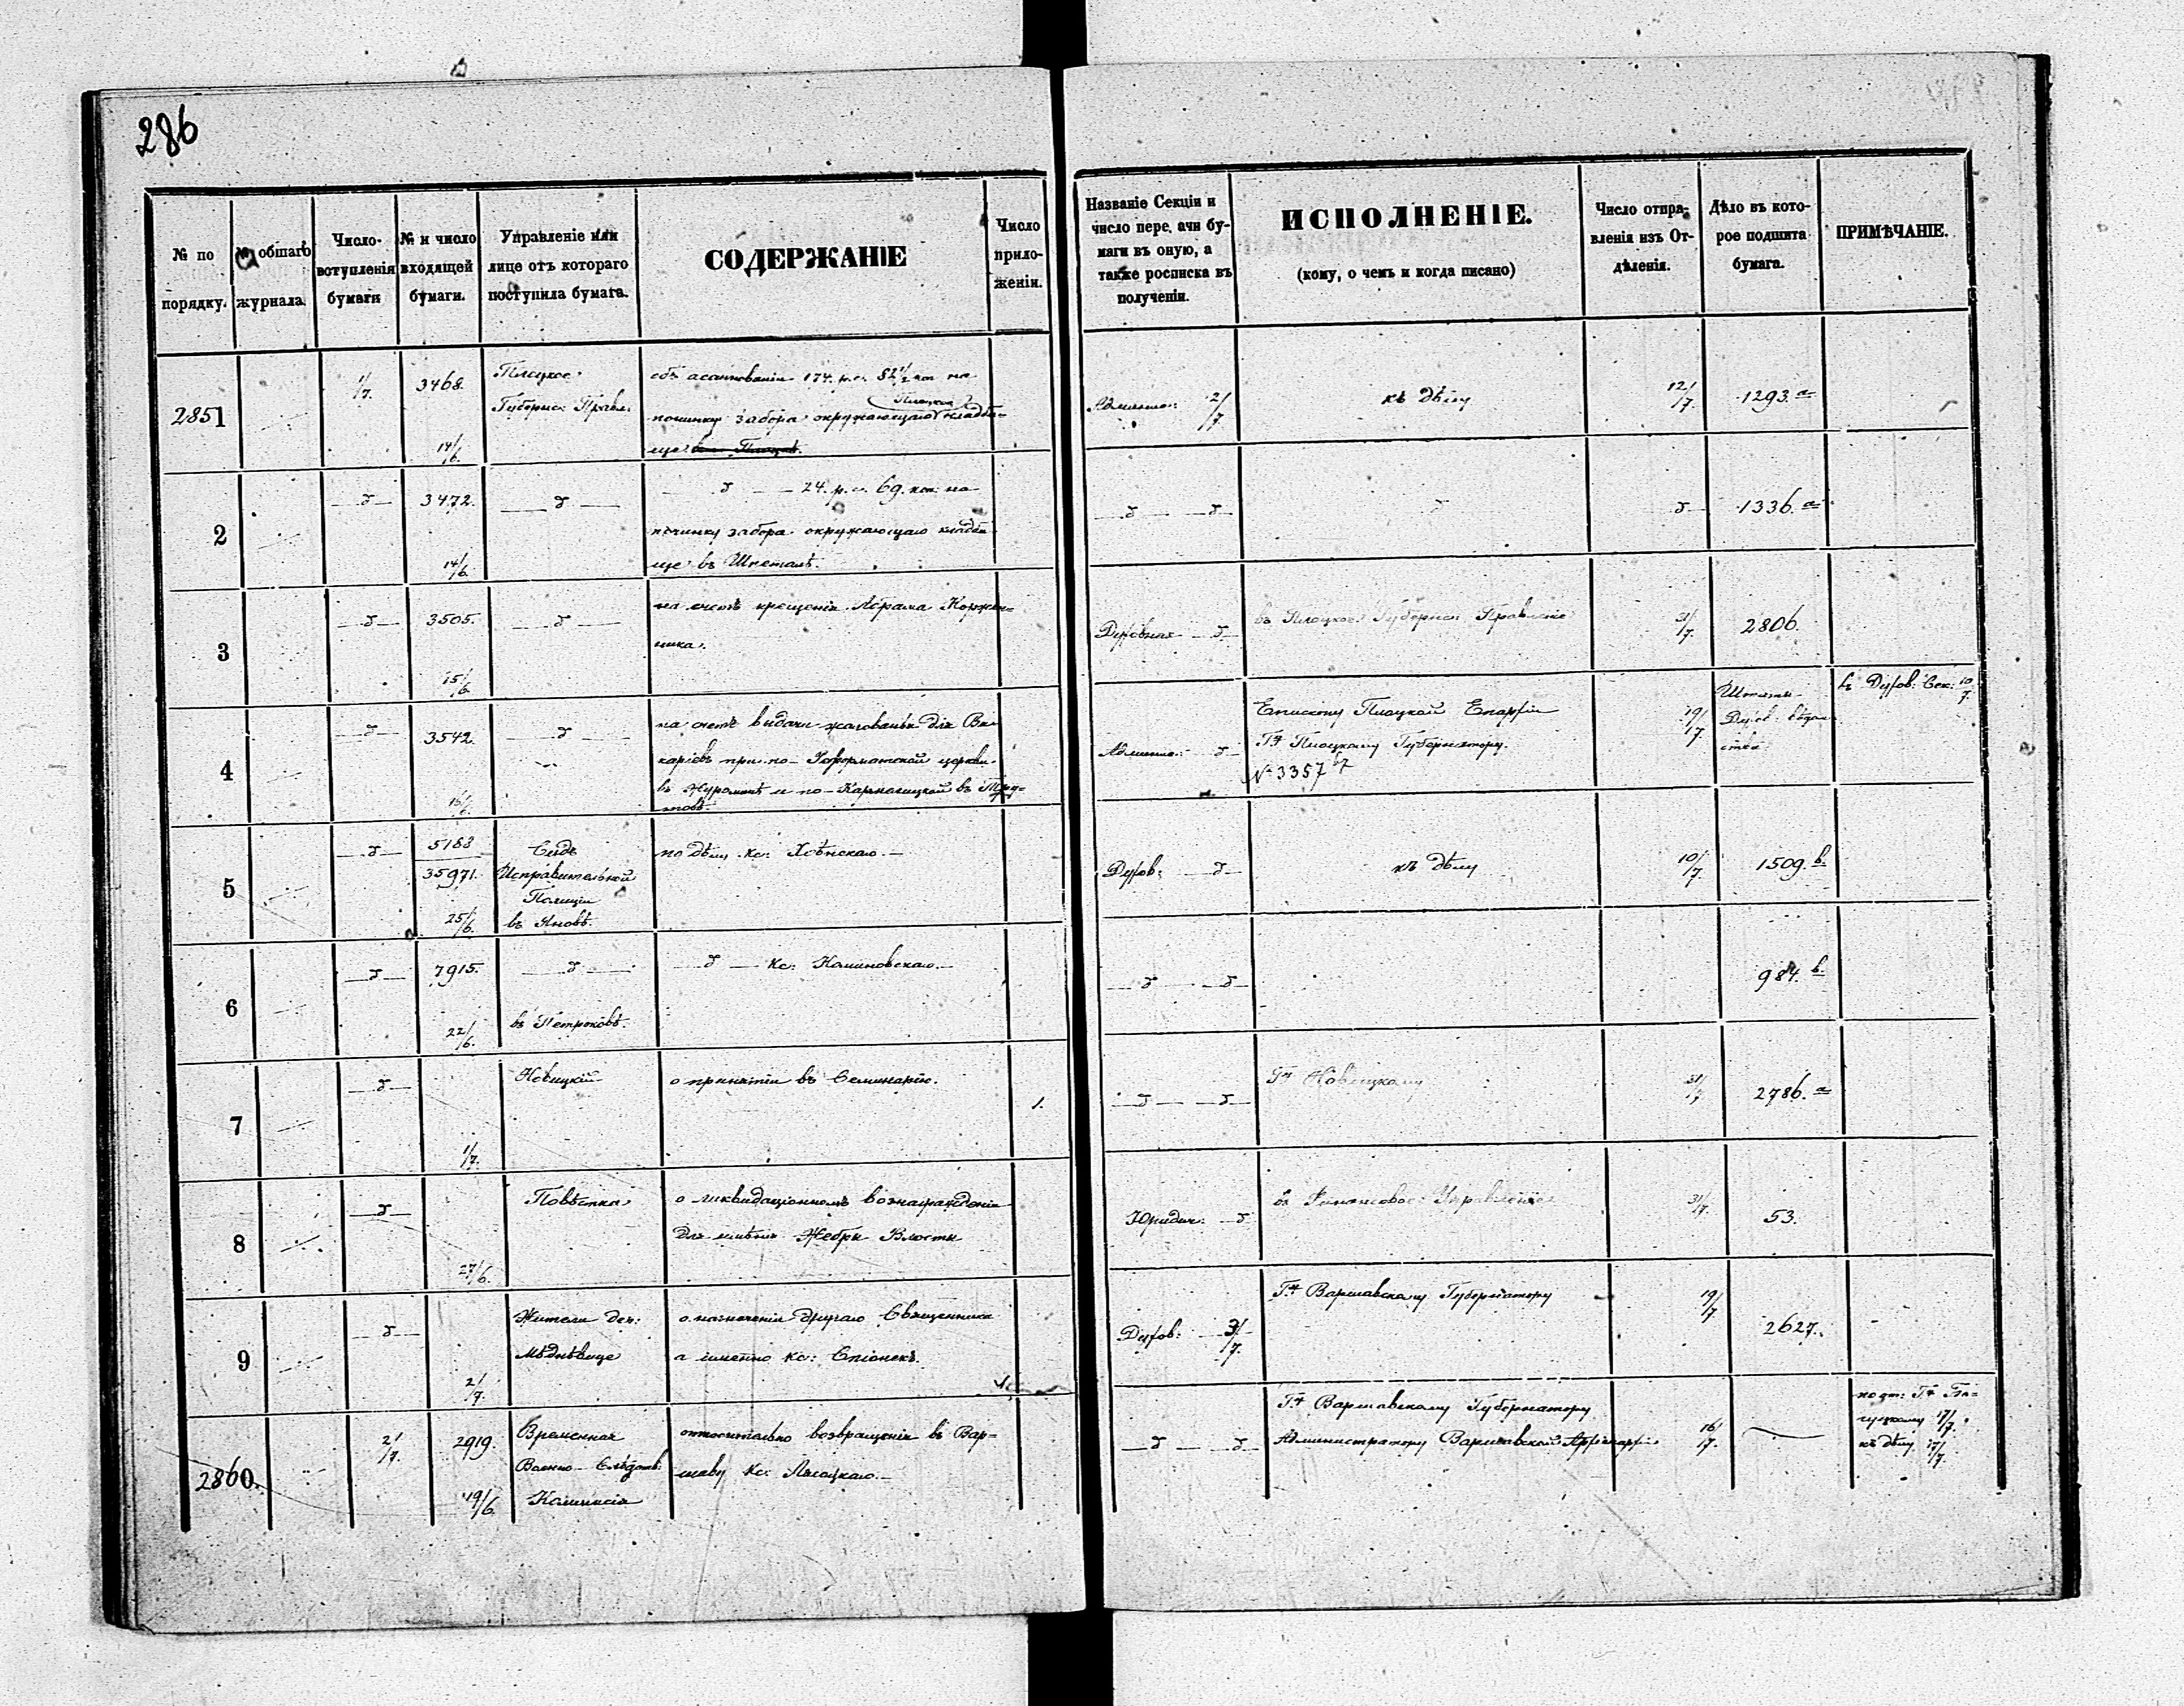 286
№ по порядку.
№ общаго журнала.
Число вступленія бумаги
№ и число входящей бумаги.
Управленіе или лице отъ котораго поступила бумага.
СОДЕРЖАНІЕ
Число приложеній.
Названіе Секціи и число пере. ачи бумаги въ оную, а также росписка въ полученіи.
ИСПОЛНЕНІЕ.
(кому, о чемъ и когда писано)
Число отправленія изъ Отдѣленія.
Дѣло въ которое подшита бумага.
ПРИМѢЧАНІЕ.
2851
1/7.
3468.
14/6.
Плоцкое
Губернс: Правл:
объ асигнованіи 174. р. с. 82 1/2 коп на
Плоцкое
починку забора окружающаго кладби=
ще
Админис: 2/7
къ дѣлу
12/7.
1293. а
2
— д —
3472.
14/6.
— д —
— д — 24. р. с. 69. коп: на
починку забора окружающаго кладби=
ще въ Шпеталѣ.
— д — д —
д
1336. а
3
— д —
3505.
15/6.
— д —
на счетъ крещенія Абрама Коржен=
ника.
Духовная — д
въ Плоцкое Губернс: Правленіе
31/7.
2806.
4
— д —
3542.
— д —
на счетъ выдачи жалованья для Ви=
каріевъ при по-Реформатской церкви
въ Журоминѣ и по-Кармелицкой въ Тру=
товѣ.
Админис: — д —
Епископу Плоцкой Епархіи
Гну Плоцкому Губернатору.
№ 3357
19/7.
Штаты
Духов. вѣдом
ства
Къ Духов: Сек: 10/7.
5
— д —
5183
35971.
25/6.
Судъ
Исправительной
Полиціи
въ Яновѣ.
по дѣлу Кс:
Духов: — д —
къ дѣлу
10/7.
1509. в.
6
— д —
7915.
22/6.
— д —
въ Петроковѣ.
— д — Кс: Калиновскаго.—
— д — д —
984. в.
7
— д —
1/7.
Новицкій
о принятіи въ Семинарію.
1.
— д — д —
Гну Новицкому
31/7.
2786. а
8
— д —
27/6.
Повѣстка
о ликвидаціонномъ вознагражденіи
для имѣнія Жебры Влосты
Юридич: — д
въ Финансовое Управленіе
31/7.
53.
9
— д —
2/7.
Жители дер:
о назначеніи другаго Священника
а именно Кс: Спіонекъ.
Духов: 3/7.
Гну Варшавскому Губернатору
19/7.
2627.
2860.
2/7.
2919.
19/6.
Временная
Военно-Слѣдств:
Коммисія
относительно возвращенія въ Вар=
шаву Кс:
— д — д —
Гну Варшавскому Губернатору
Администратору Варшавской Архіепархіи
16/7.
17/7.
къ дѣлу 17/7.